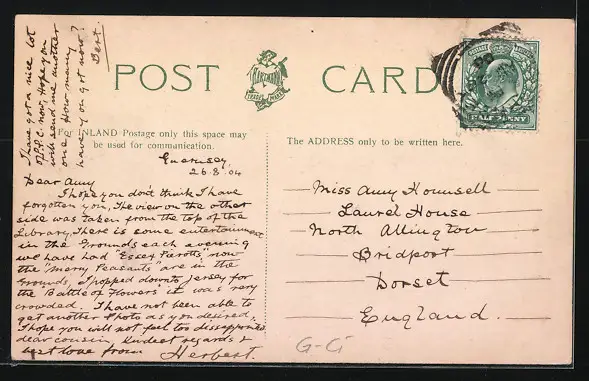 I have got a nice lot
of P.P.C. now, Hope you
will send me another
one. How many
have you got now?
Bert.
POST CARD
HARTMANN
TRADE MARK
POSTAGE REVENUE
HALF PENNY
For INLAND Postage only this space may
be used for communication.
The ADDRESS only to be written here.
Guernsey
26.8.04
Dear Amy
I hope you don't think I have
forgotten you, The view on the other
side was taken from the top of the
Library, There is some entertainment
in the Grounds each evening
we have had "Essex Pierotts", now
the "Merry Peasants" are in the
Grounds, I popped down to Jersey for
the "Battle of Flowers" it was very
crowded. I have not been able to
get another Photo as you desired,
I hope you will not feel too disappointed
dear cousin, Kindest regards &
best love from Herbert.
Miss Amy Hounsell
Laurel House
North Allington
Bridport
Dorset
England.
G-Ci